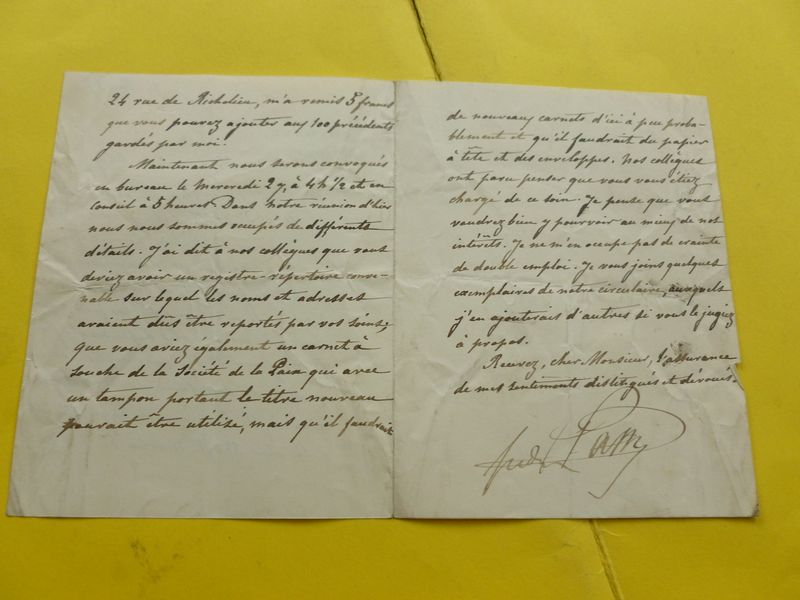 24 rue de Richelieu, m'a remis 5 francs
que vous pouvez ajouter aux 100 précédents
gardés par moi.
Maintenant nous serons convoqués
en bureau le Mercredi 27, à 4h ½ et en
Conseil à 5 heures. Dans notre réunion d'hier
nous nous sommes occupés de différents
détails. J'ai dit à nos collègues que vous
deviez avoir un registre-répertoire conve-
nable sur lequel les noms et adresses
avaient dûs être reportés par vos soins;
que vous aviez également un carnet à
souche de la Société de la Paix qui avec
un tampon portant le titre nouveau
pourrait être utilisé, mais qu'il faudrait
de nouveaux carnets d'ici à peu proba-
blement et qu'il faudrait du papier
à tête et des enveloppes. Nos collègues
ont paru penser que vous vous étiez
chargé de ce soin. Je pense que vous
voudrez bien y pourvoir au mieux de nos
intérêts. Je ne m'en occupe pas de crainte
de double emploi. Je vous joins quelques
exemplaires de notre circulaire, auxquels
j'en ajouterais d'autres si vous le jugiez
à propos.
Recevez, cher Monsieur, l'assurance
de mes sentiments distingués et dévoués.
Fréd. Passy